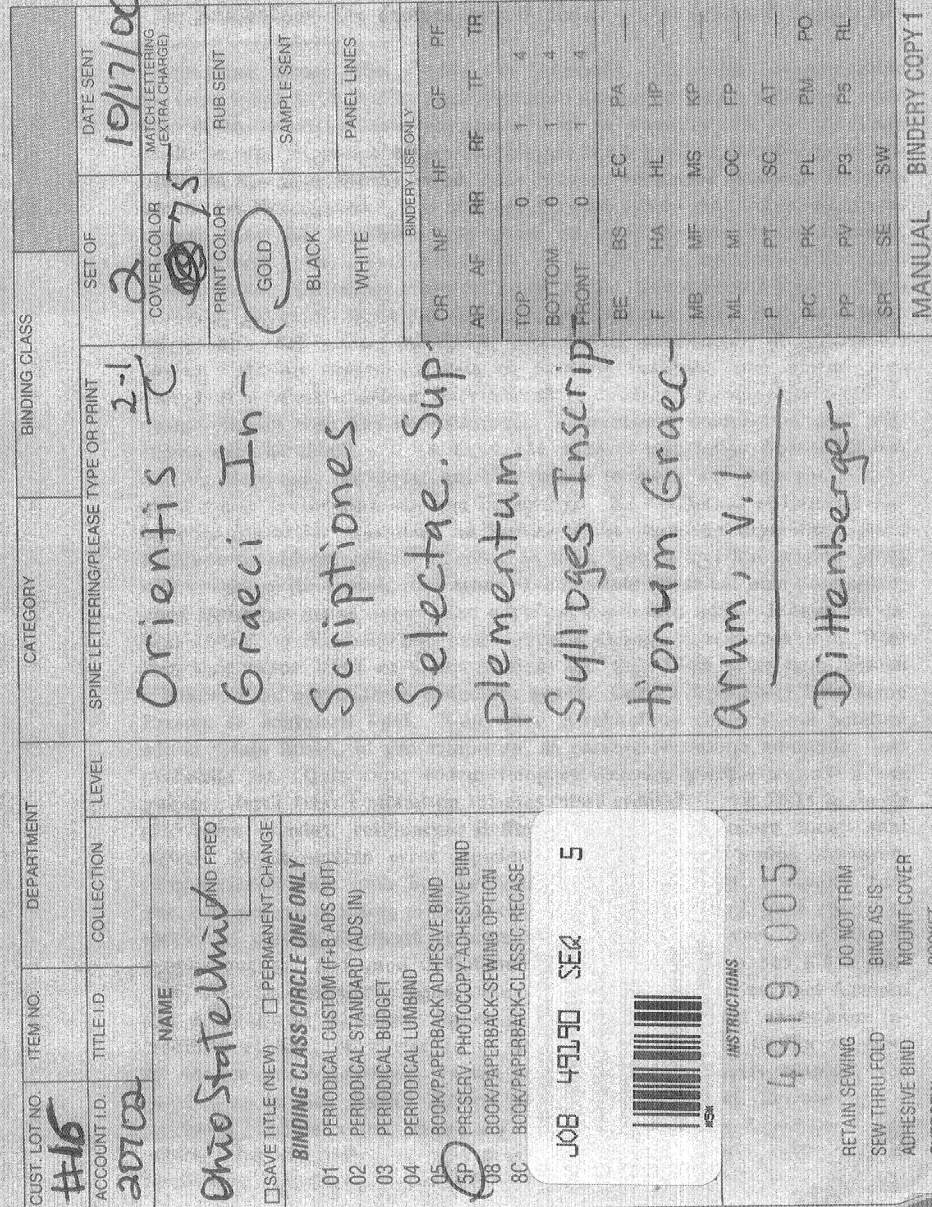 CUST. LOT NO. ITEM NO. DEPARTMENT CATEGORY BINDING CLASS
#15
ACCOUNT I.D. TITLE I.D. COLLECTION LEVEL
20702
NAME
Ohio State Univ
BIND FREQ
☐ SAVE TITLE (NEW) ☐ PERMANENT CHANGE
BINDING CLASS CIRCLE ONE ONLY
01 PERIODICAL CUSTOM (F+B ADS OUT)
02 PERIODICAL STANDARD (ADS IN)
03 PERIODICAL BUDGET
04 PERIODICAL LUMBIND
05 BOOK/PAPERBACK ADHESIVE BIND
5P PRESERV. PHOTOCOPY-ADHESIVE BIND
08 BOOK/PAPERBACK-SEWING OPTION
8C BOOK/PAPERBACK-CLASSIC RECASE
JOB 49190 SEQ 5
INSTRUCTIONS
4919005
RETAIN SEWING DO NOT TRIM
SEW THRU FOLD BIND AS IS
ADHESIVE BIND MOUNT COVER
SPINE LETTERING/PLEASE TYPE OR PRINT
2-1
C
Orientis
Graeci In-
Scriptiones
Selectae. Sup-
plementum
Sylloges Inscrip-
tionum Graec-
arum, v.1
Dittenberger
SET OF
2
DATE SENT
10/17/00
COVER COLOR
75
MATCH LETTERING
(EXTRA CHARGE)
PRINT COLOR
GOLD
BLACK
WHITE
RUB SENT
SAMPLE SENT
PANEL LINES
BINDERY USE ONLY
OR NF HF CF PF
AR AF RR RF TF TR
TOP 0 1 4
BOTTOM 0 1 4
FRONT 0 1 4
BE BS EC PA —
F HA HL HP —
MB MF MS KP
ML MI OC FP —
P PT SC AT —
PC PK PL PM PO
PP PV P3 PS RL
SR SE SW
MANUAL BINDERY COPY 1